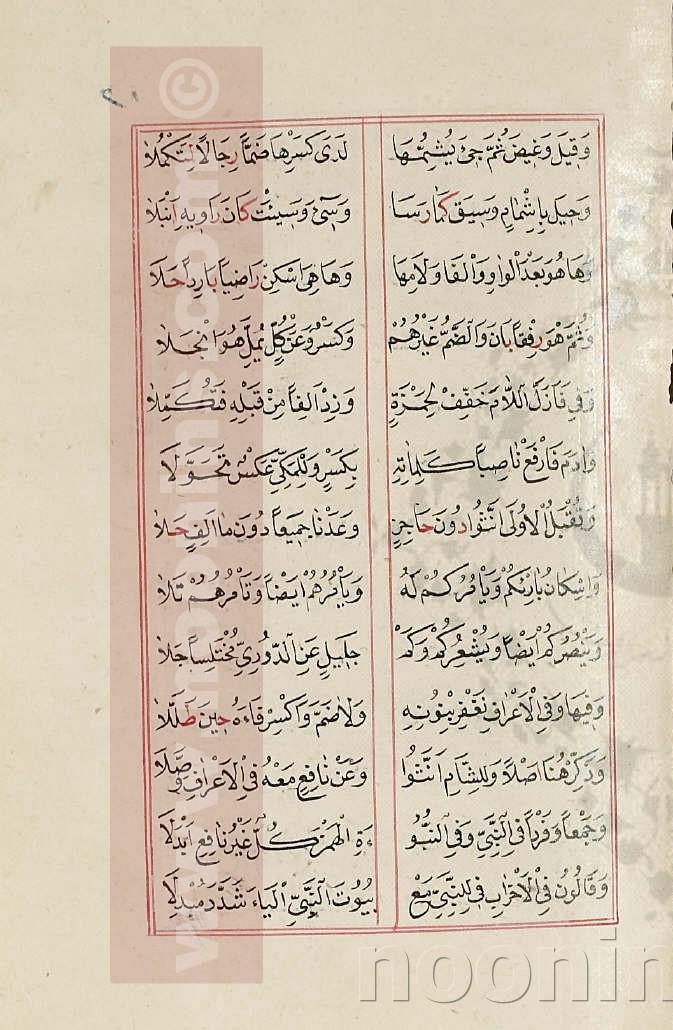 ٢١
وَقِيلَ وَغِيضَ ثُمَّ جِيءَ يُشِمُّهَا لَدَى كَسْرِهَا ضَمًّا رِجَالٌ لِتَكْمُلَا
وَحِيلَ بِإِشْمَامٍ وَسِيقَ كَمَا رَسَا وَسِيءَ وَسِيئَتْ كَانَ رَاوِيهِ أَنْبَلَا
وَهَا هُوَ بَعْدَ الْوَاوِ وَالْفَا وَلَامِهَا وَهَا هِيَ أَسْكِنْ رَاضِيًا بَارِدًا حَلَا
وَثُمَّ هْوَ رِفْقًا بَانَ وَالضَّمُّ غَيْرُهُمْ وَكَسْرٌ وَعَنْ كُلٍّ يُمِلَّ هُوَ انْجَلَا
وَفِي فَأَزَلَّ اللَّامَ خَفِّفْ لِحَمْزَةٍ وَزِدْ أَلِفًا مِنْ قَبْلِهِ فَتُكَمِّلَا
وَآدَمَ فَارْفَعْ نَاصِبًا كَلِمَاتِهِ بِكَسْرٍ وَلِلْمَكِّيِّ عَكْسٌ تَحَوَّلَا
وَتُقْبَلُ الْأُولَى أَنَّثُوا دُونَ حَاجِزٍ وَعَدْنَا جَمِيعًا دُونَ مَا أَلِفٍ حَلَا
وَإِسْكَانُ بَارِئْكُمْ وَيَأْمُرُكُمْ لَهُ وَيَأْمُرُهُمْ أَيْضًا وَتَأْمُرُهُمْ تَلَا
وَيَنْصُرُكُمْ أَيْضًا وَيُشْعِرُكُمْ وَكَمْ جَلِيلٍ عَنِ الدُّورِيِّ مُخْتَلِسًا جَلَا
وَفِيهَا وَفِي الْأَعْرَافِ نَغْفِرْ بِنُونِهِ وَلَا ضَمَّ وَاكْسِرْ فَاءَهُ حِينَ ظَلَّلَا
وَذَكِّرْ هُنَا أَصْلًا وَلِلشَّامِ أَنَّثُوا وَعَنْ نَافِعٍ مَعْهُ فِي الْأَعْرَافِ وُصِّلَا
وَجَمْعًا وَفَرْدًا فِي النَّبِيِّ وَفِي النُّبُو ءَةِ الْهَمْزَ كُلٌّ غَيْرَ نَافِعٍ ابْدَلَا
وَقَالُونُ فِي الْأَحْزَابِ فِي لِلنَّبِيِّ مَعْ بُيُوتَ النَّبِيِّ الْيَاءَ شَدَّدَ مُبْدِلَا
www.noonins.com ©
noonin